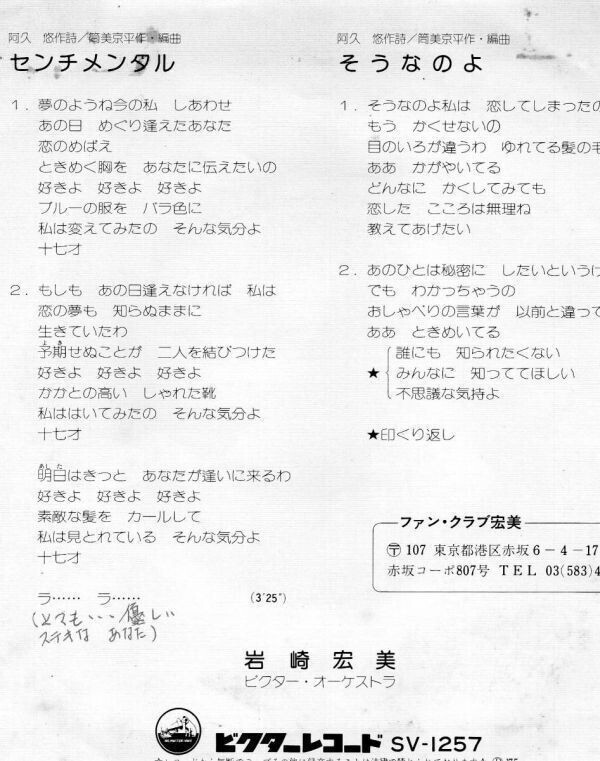 阿久　悠作詩／筒美京平作・編曲
センチメンタル
1．夢のようね今の私　しあわせ
あの日　めぐり逢えたあなた
恋のめばえ
ときめく胸を　あなたに伝えたいの
好きよ　好きよ　好きよ
ブルーの服を　バラ色に
私は変えてみたの　そんな気分よ
十七才
2．もしも　あの日逢えなければ　私は
恋の夢も　知らぬままに
生きていたわ
予期せぬことが　二人を結びつけた
好きよ　好きよ　好きよ
かかとの高い　しゃれた靴
私ははいてみたの　そんな気分よ
十七才
あした
明日はきっと　あなたが逢いに来るわ
好きよ　好きよ　好きよ
素敵な髪を　カールして
私は見とれている　そんな気分よ
十七才
ラ……　ラ……　(3′25″)
(とても・・・優しい
ステキな　あなた)
阿久　悠作詩／筒美京平作・編曲
そうなのよ
1．そうなのよ私は　恋してしまったの
もう　かくせないの
目のいろが違うわ　ゆれてる髪の毛
ああ　かがやいてる
どんなに　かくしてみても
恋した　こころは無理ね
教えてあげたい
2．あのひとは秘密に　したいというけ
でも　わかっちゃうの
おしゃべりの言葉が　以前と違って
ああ　ときめいてる
誰にも　知られたくない
★ みんなに　知っててほしい
不思議な気持よ
★印くり返し
ファン・クラブ宏美
〒107 東京都港区赤坂6－4－17
赤坂コーポ807号 TEL 03(583)4
岩崎宏美
ビクター・オーケストラ
ビクターレコード SV-1257